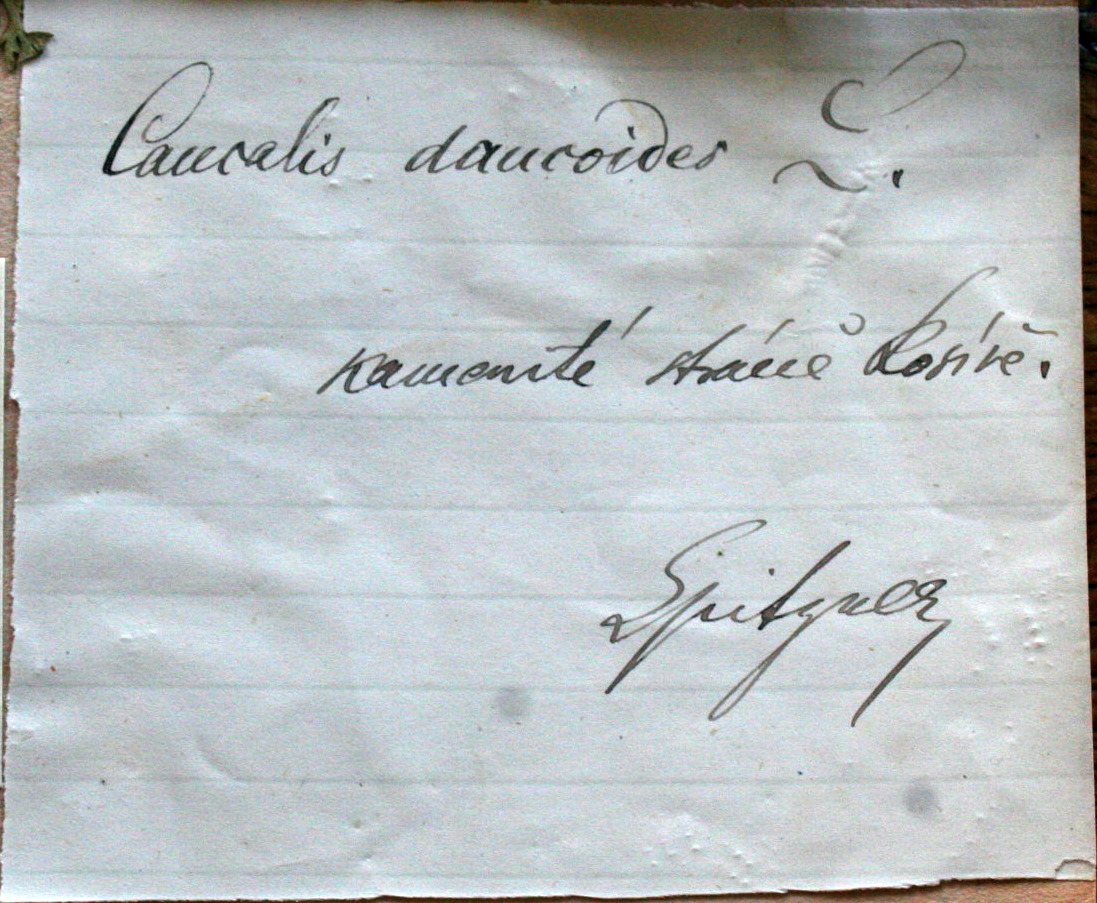 Caucalis daucoides L.
kamenité stráně Kosíře.
Spitzner